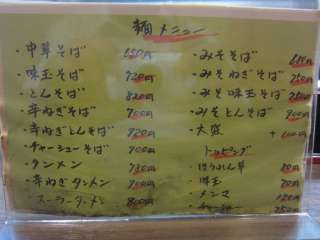 麺メニュー
・中華そば 650円
・味玉そば 720円
・とんそば 820円
・辛ねぎそば 700円
・辛ねぎとんそば 920円
・チャーシューそば 900円
・タンメン 730円
・辛ねぎタンメン 900円
・スーラータンメン 800円
・みそそば
・みそねぎそば
・みそ味玉そば
・みそとんそば 900円
・大盛 +100円
トッピング
ほうれん草
味玉
メンマ
チャーシュー